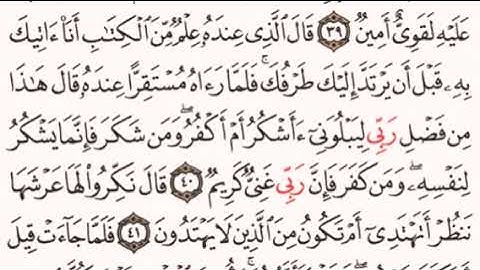 عَلَيۡهِ لَقَوِيٌّ أَمِينٞ ٣٩ قَالَ ٱلَّذِي عِندَهُۥ عِلۡمٞ مِّنَ ٱلۡكِتَٰبِ أَنَا۠ ءَاتِيكَ
بِهِۦ قَبۡلَ أَن يَرۡتَدَّ إِلَيۡكَ طَرۡفُكَۚ فَلَمَّا رَءَاهُ مُسۡتَقِرًّا عِندَهُۥ قَالَ هَٰذَا
مِن فَضۡلِ رَبِّي لِيَبۡلُوَنِيٓ ءَأَشۡكُرُ أَمۡ أَكۡفُرُۖ وَمَن شَكَرَ فَإِنَّمَا يَشۡكُرُ
لِنَفۡسِهِۦۖ وَمَن كَفَرَ فَإِنَّ رَبِّي غَنِيّٞ كَرِيمٞ ٤٠ قَالَ نَكِّرُواْ لَهَا عَرۡشَهَا
نَنظُرۡ أَتَهۡتَدِيٓ أَمۡ تَكُونُ مِنَ ٱلَّذِينَ لَا يَهۡتَدُونَ ٤١ فَلَمَّا جَآءَتۡ قِيلَ